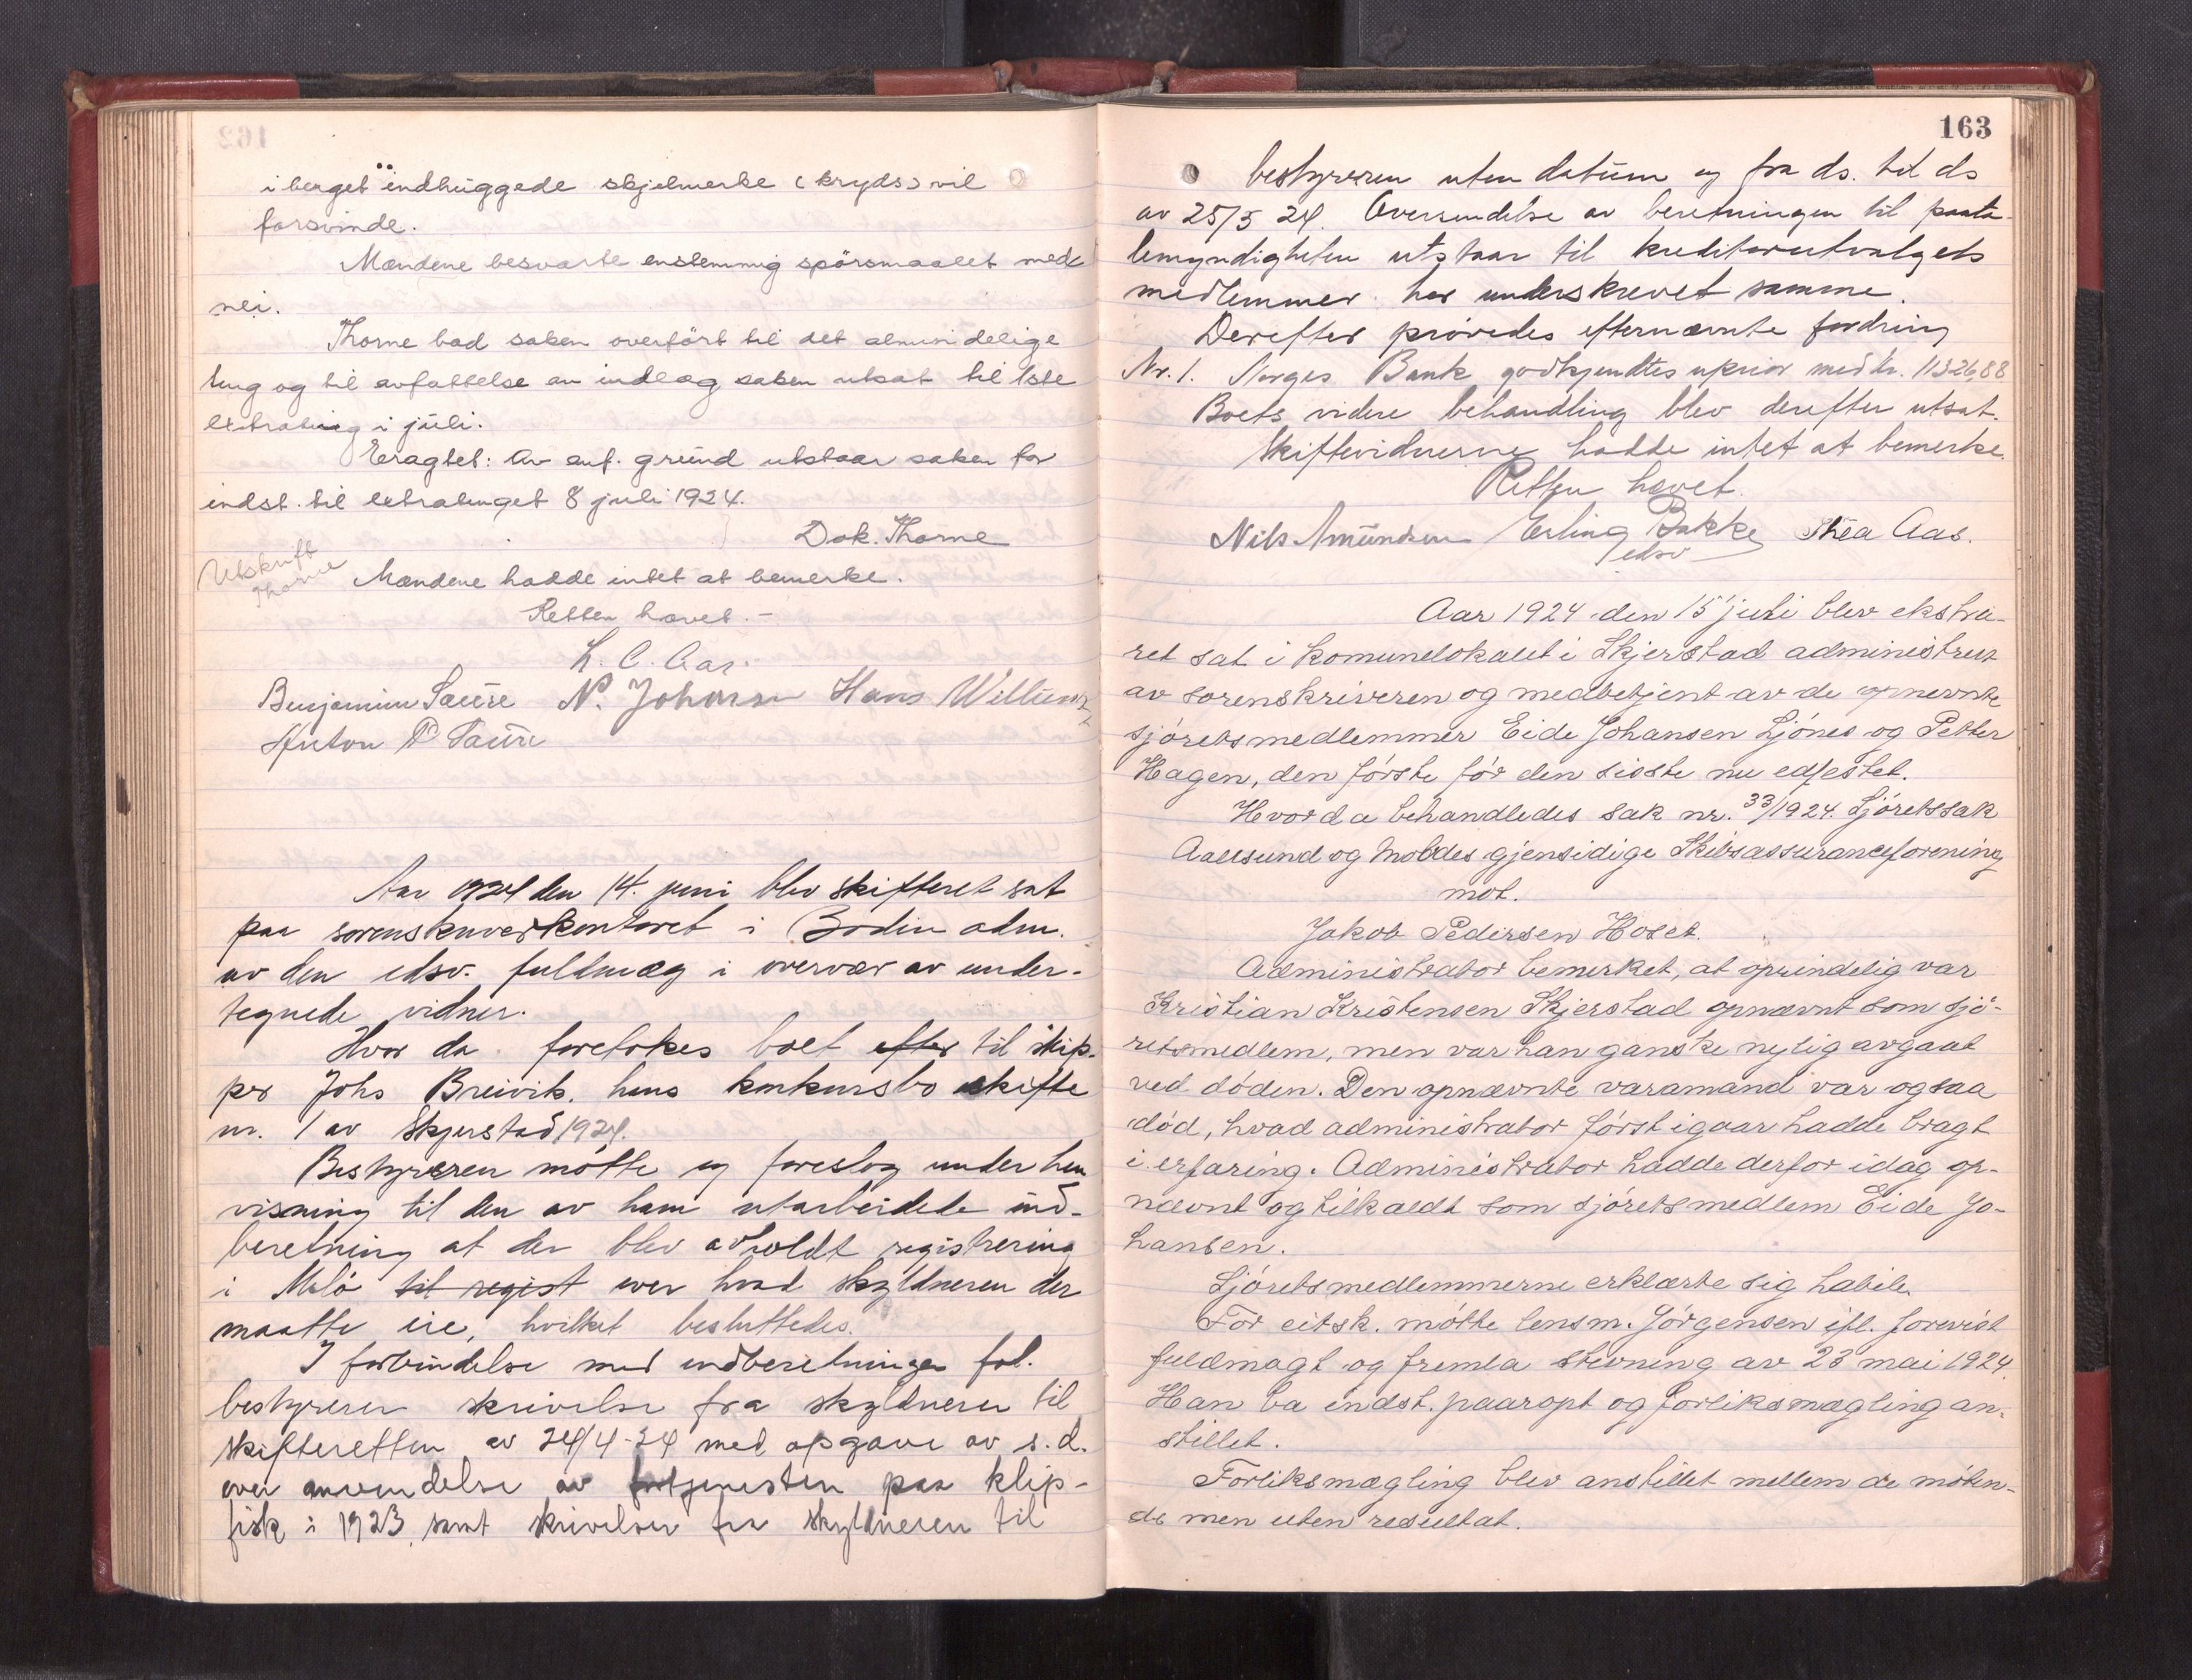 i berget indhuggede skjelmerke (kryds) vil
forsvinde.
Mændene besvarte enstemmig spörsmaalet med
nei.
Thorne bad saken overfört til det almindelige
ting og til avfattelse av indlæg saken utsat til 1ste
extrating i juli.
Eragtet: Av anf. grund utstaar saken for
indst. til extratinget 8 juli 1924.
Dok. Thorne
Utskrift
Thorne
Mændene hadde intet at bemerke.
Retten hævet. -
L. C. Aas.
Benjamin Saure N. Johansen Hans Willums
Anton P Saure
Aar 1924 den 14. juni blev skifteret sat
paa sorenskriverkontoret i Bodin adm.
av den edsv. fuldmæg i overvær av under-
tegnede vidner.
Hvor da foretokes boet efter til skip-
per Johs Breivik, hans konkursbo skifte
nr. 1 av Skjerstad 1924.
Bestyreren mötte og foreslog under hen
visning til den av ham utarbeidede ind-
beretning at der blev avholdt registrering
i Melö til regist over hvad skyldneren der
maatte eie, hvilket besluttedes.
I forbindelse med indberetningen fol.
bestyreren skrivelse fra skyldneren til
skifteretten av 24/4-24 med opgave av s.d.
over anvendelse av fortjenesten paa klip-
fisk i 1923, samt skrivelser fra skyldneren til
163
bestyreren uten datum og fra ds. til ds
av 25/5 24. Oversendelse av beretningen til paata-
lemyndigheten utstaar til kreditorutvalgets
medlemmer har underskrevet samme.
Derefter prövedes efternævnte fordring
Nr. 1. Norges Bank godkjendtes uprior med kr. 11326,88
Boets videre behandling blev derefter utsat.
Skiftevidnerne hadde intet at bemerke.
Retten hævet.
Nils Amundsen Erling Bakke Thea Aas.
edsv
Aar 1924 den 15 juli blev ekstra-
ret sat i komunelokalet i Skjerstad administrert
av sorenskriveren og medbetjent av de opnevnte
sjöretsmedlemmer Eide Johansen Ljönes og Petter
Hagen, den förste för den siste nu edfestet.
Hvor da behandledes sak nr. 33/1924. Sjöretssak
Aalesund og Moldes gjensidige Skibsassuranceforening
mot.
Jakob Pedersen Hoset.
Administrator bemerket, at oprindelig var
Kristian Kristensen Skjerstad opnævnt som sjö-
retsmedlem, men var han ganske nylig avgaat
ved döden. Den opnævnte varamand var ogsaa
död, hvad administrator först igaar hadde bragt
i erfaring. Administrator hadde derfor idag op-
nævnt og tilkaldt som sjöretsmedlem Eide Jo-
hansen.
Sjöretsmedlemmerne erklærte sig habile.
For citsk. mötte lensm. Jörgensen ifl. forevist
fuldmagt og fremla stevning av 23 mai 1924.
Han ba indst. paaropt og forliksmægling an-
stillet.
Forliksmægling blev anstillet mellem de möten-
de men uten resultat.